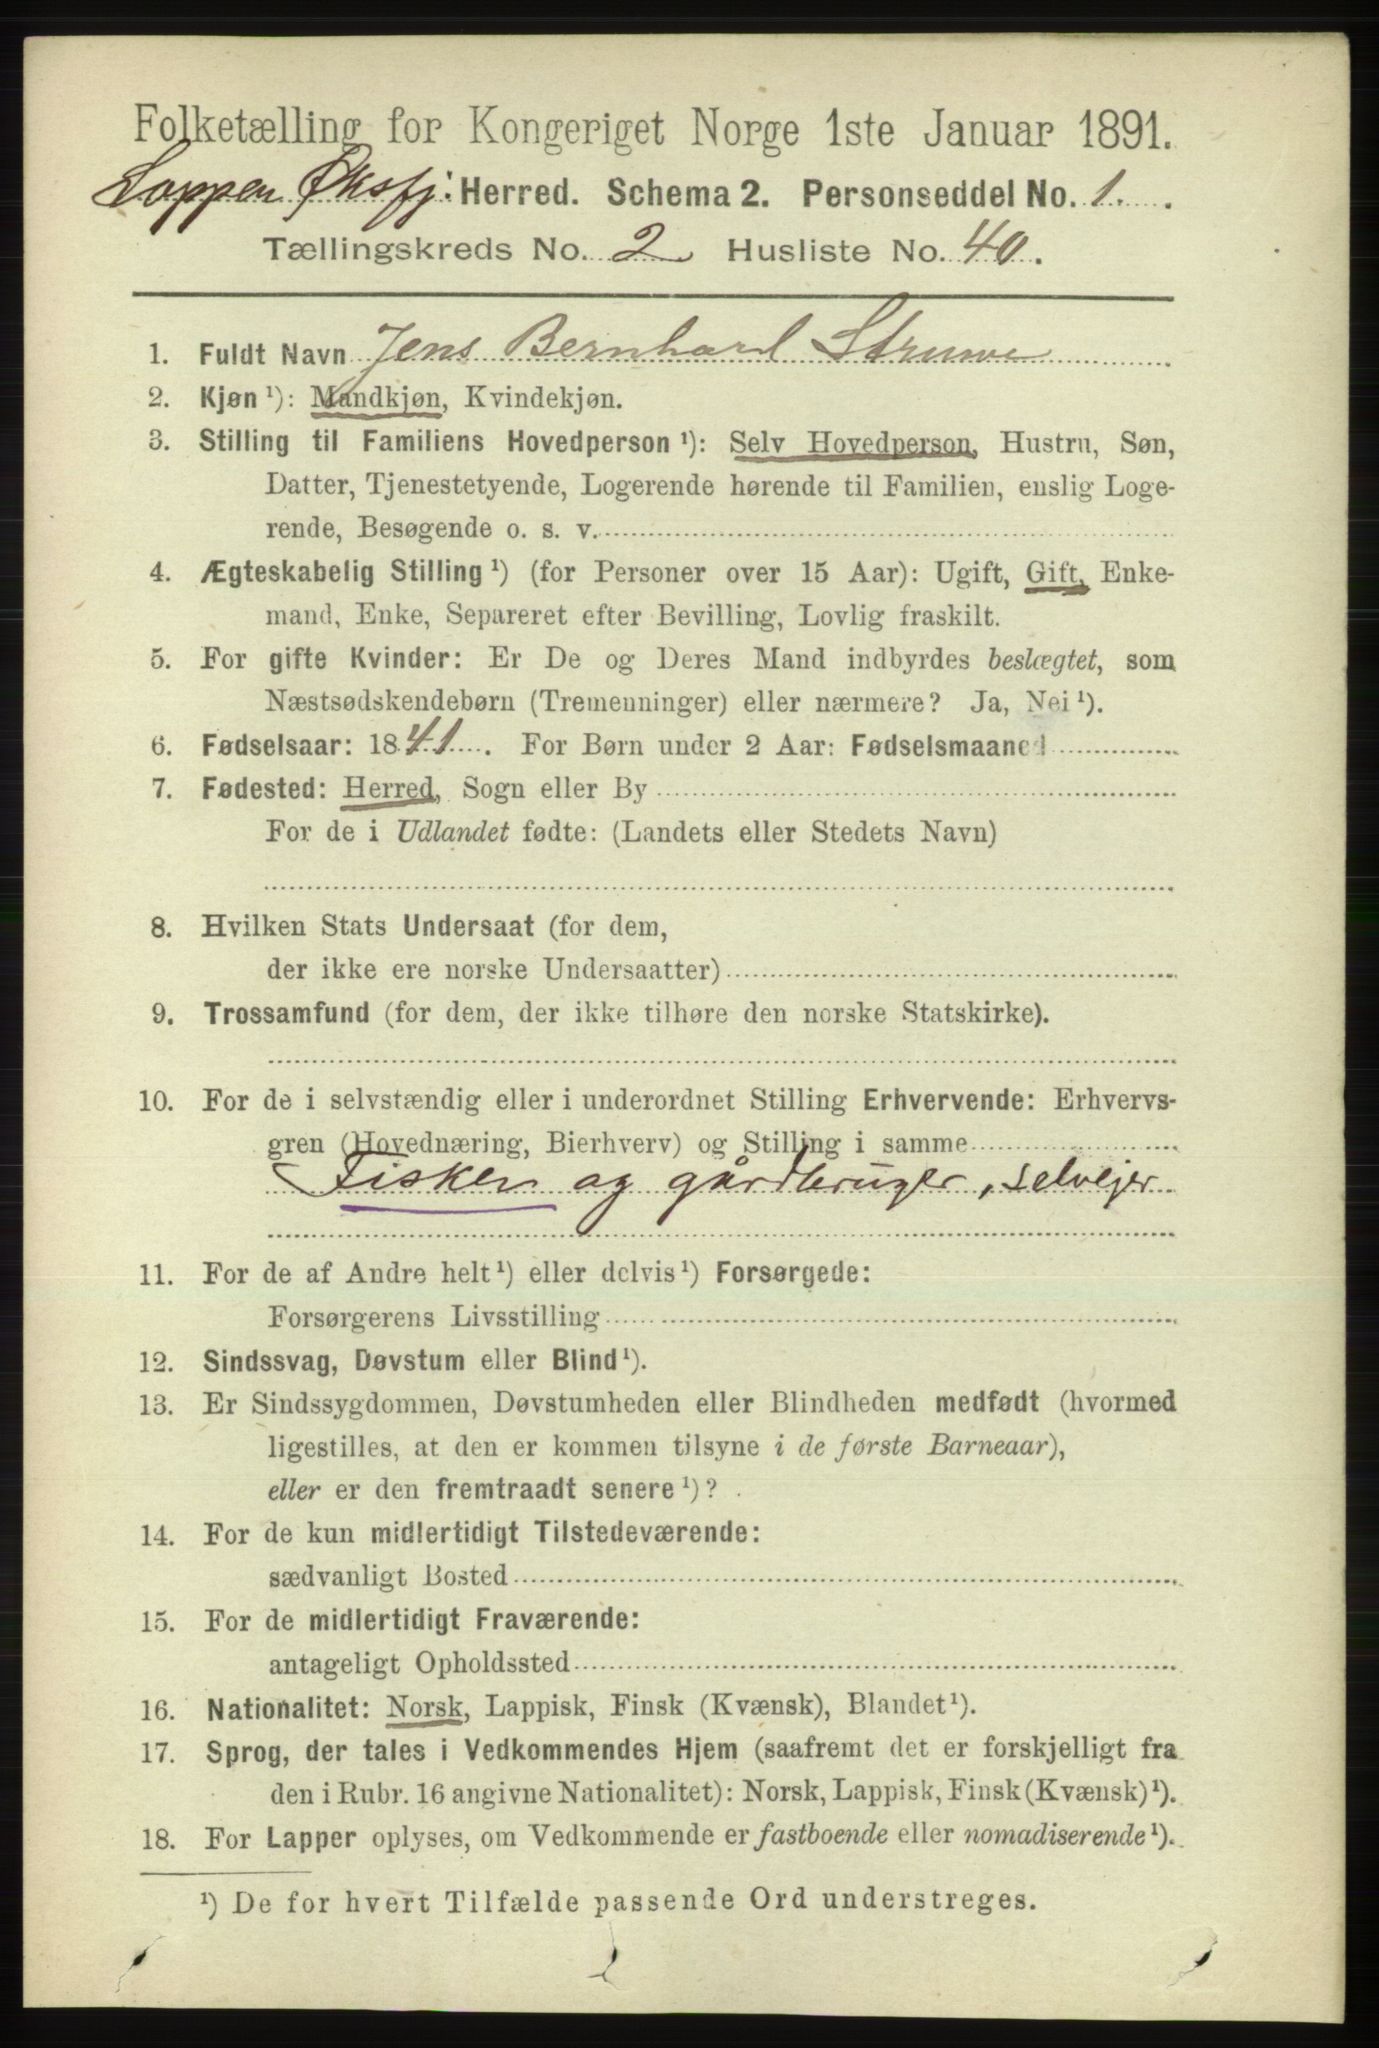 Folketælling for Kongeriget Norge 1ste Januar 1891.
Loppen Øksfj: Herred. Schema 2. Personseddel No. 1.
Tællingskreds No. 2 Husliste No. 40.
1. Fuldt Navn Jens Bernhard Struwe
2. Kjøn ¹): Mandkjøn, Kvindekjøn.
3. Stilling til Familiens Hovedperson ¹): Selv Hovedperson, Hustru, Søn,
Datter, Tjenestetyende, Logerende hørende til Familien, enslig Loge-
rende, Besøgende o. s. v.
4. Ægteskabelig Stilling ¹) (for Personer over 15 Aar): Ugift, Gift, Enke-
mand, Enke, Separeret efter Bevilling, Lovlig fraskilt.
5. For gifte Kvinder: Er De og Deres Mand indbyrdes beslægtet, som
Næstsødskendebørn (Tremenninger) eller nærmere? Ja, Nei ¹).
6. Fødselsaar: 1841. For Børn under 2 Aar: Fødselsmaaned
7. Fødested: Herred, Sogn eller By
For de i Udlandet fødte: (Landets eller Stedets Navn)
8. Hvilken Stats Undersaat (for dem,
der ikke ere norske Undersaatter)
9. Trossamfund (for dem, der ikke tilhøre den norske Statskirke).
10. For de i selvstændig eller i underordnet Stilling Erhvervende: Erhvervs-
gren (Hovednæring, Bierhverv) og Stilling i samme
Fisker og gårdbruger, selvejer
11. For de af Andre helt ¹) eller delvis ¹) Forsørgede:
Forsørgerens Livsstilling
12. Sindssvag, Døvstum eller Blind ¹).
13. Er Sindssygdommen, Døvstumheden eller Blindheden medfødt (hvormed
ligestilles, at den er kommen tilsyne i de første Barneaar),
eller er den fremtraadt senere ¹)?
14. For de kun midlertidigt Tilstedeværende:
sædvanligt Bosted
15. For de midlertidigt Fraværende:
antageligt Opholdssted
16. Nationalitet: Norsk, Lappisk, Finsk (Kvænsk), Blandet ¹).
17. Sprog, der tales i Vedkommendes Hjem (saafremt det er forskjelligt fra
den i Rubr. 16 angivne Nationalitet): Norsk, Lappisk, Finsk (Kvænsk) ¹).
18. For Lapper oplyses, om Vedkommende er fastboende eller nomadiserende ¹).
¹) De for hvert Tilfælde passende Ord understreges.